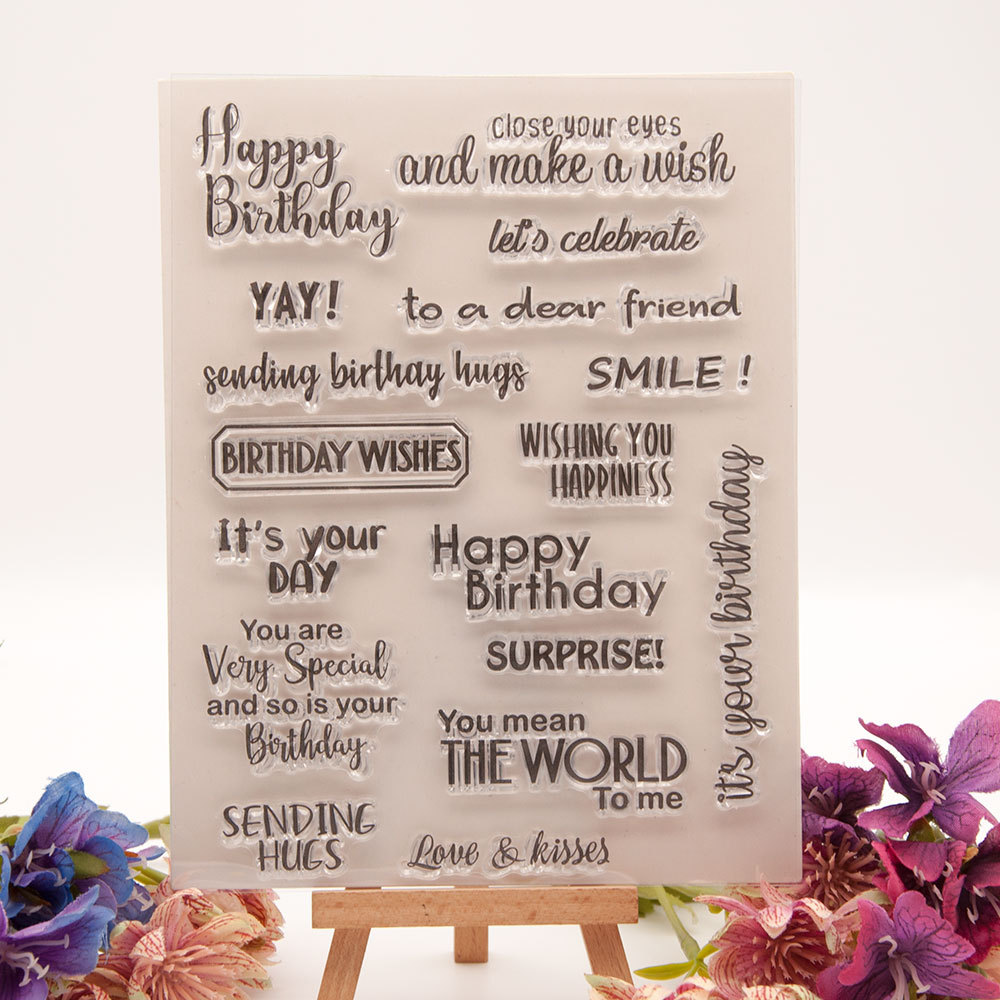 Happy
Birthday
close your eyes
and make a wish
let's celebrate
YAY!
to a dear friend
sending birthay hugs
SMILE !
BIRTHDAY WISHES
WISHING YOU
HAPPINESS
it's your birthday
It's your
DAY
Happy
Birthday
You are
Very Special
and so is your
Birthday
SURPRISE!
You mean
THE WORLD
To me
SENDING
HUGS
Love & kisses